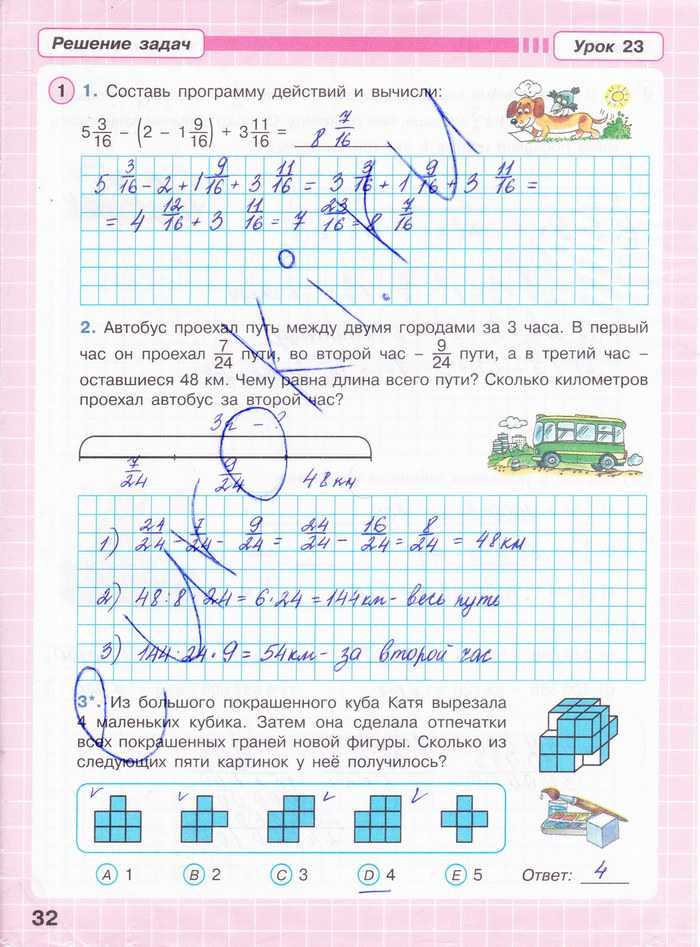 Решение задач
Урок 23
1 1. Составь программу действий и вычисли:
5 3/16 − (2 − 1 9/16) + 3 11/16 = 8 7/16
5 3/16 − 2 + 1 9/16 + 3 11/16 = 3 3/16 + 1 9/16 + 3 11/16 =
= 4 12/16 + 3 11/16 = 7 23/16 = 8 7/16
2. Автобус проехал путь между двумя городами за 3 часа. В первый
час он проехал 7/24 пути, во второй час – 9/24 пути, а в третий час –
оставшиеся 48 км. Чему равна длина всего пути? Сколько километров
проехал автобус за второй час?
3ч – ?
7/24 9/24 48 км
1) 24/24 − 7/24 − 9/24 = 24/24 − 16/24 = 8/24 = 48 км
2) 48 : 8 · 24 = 6 · 24 = 144 км - весь путь
3) 144 : 24 · 9 = 54 км - за второй час
3*. Из большого покрашенного куба Катя вырезала
4 маленьких кубика. Затем она сделала отпечатки
всех покрашенных граней новой фигуры. Сколько из
следующих пяти картинок у неё получилось?
A 1 B 2 C 3 D 4 E 5 Ответ: 4
32